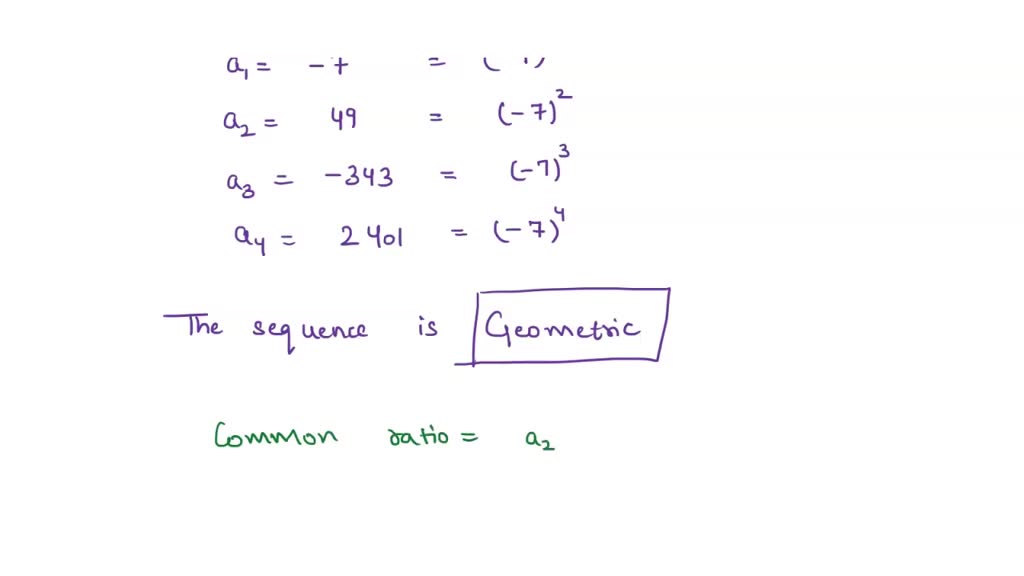 a₁ = -7 =
a₂ = 49 = (-7)²
a₃ = -343 = (-7)³
a₄ = 2401 = (-7)⁴
The sequence is Geometric
Common ratio = a₂